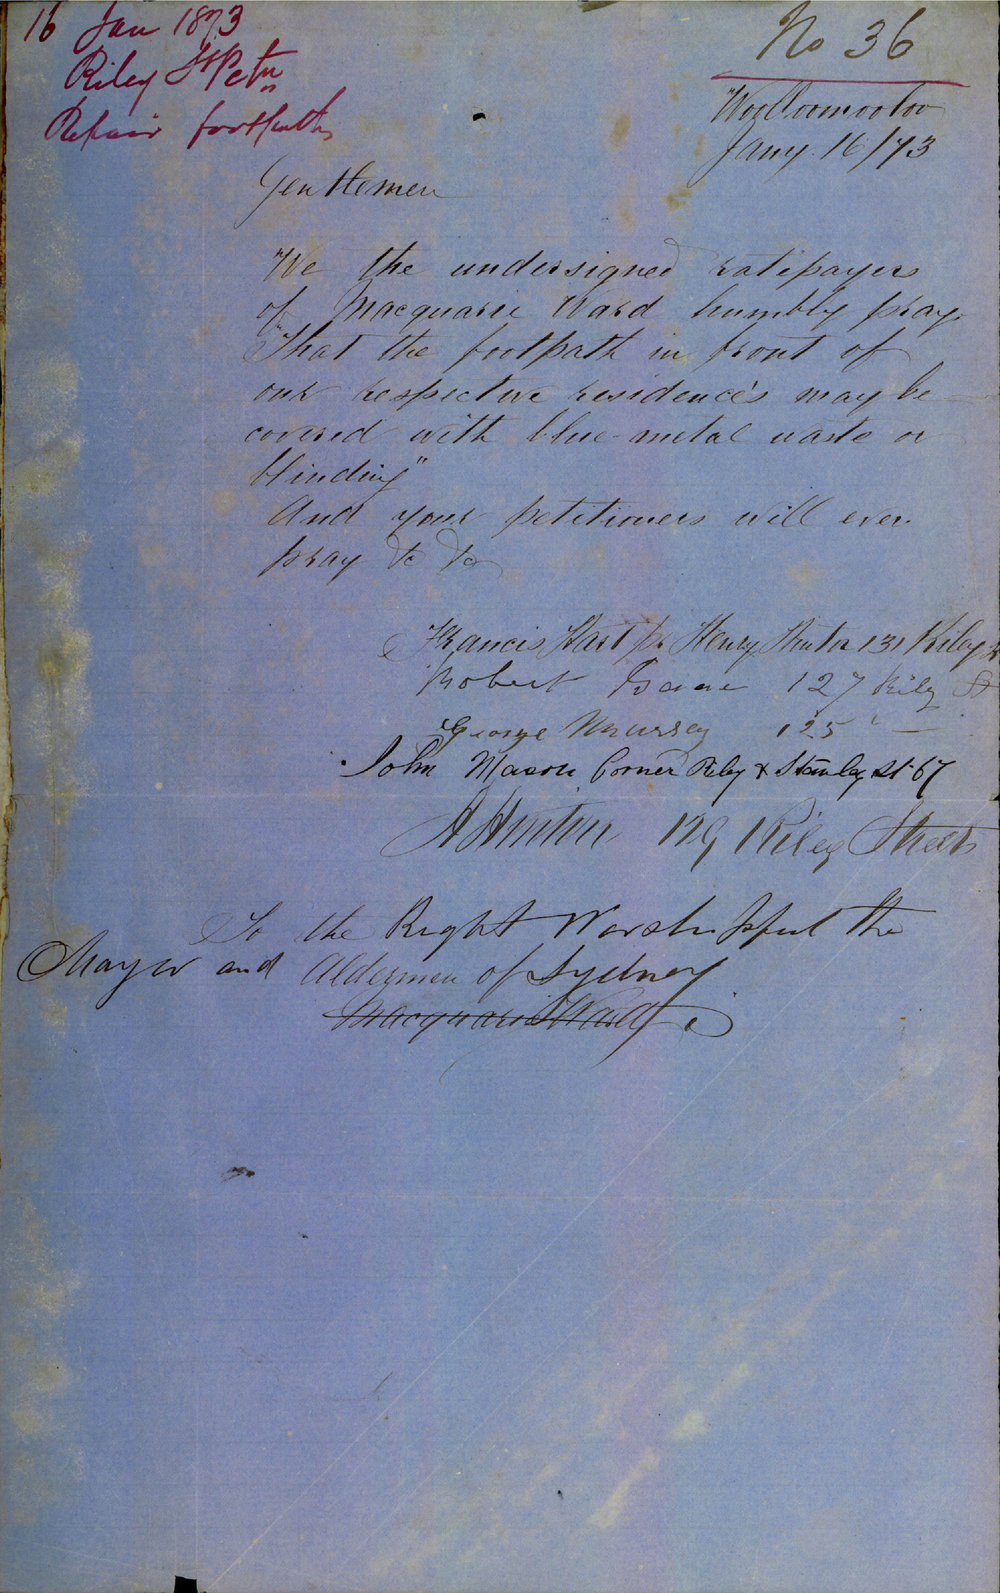 16 Jan 1873
Riley St Petn
Repair footpaths
No 36
Woolloomooloo
Jany. 16/73
Gentlemen
We the undersigned ratepayers
of Macquarie Ward humbly pray
"That the footpath in front of
our respective residence's may be
covered with blue-metal waste or
blinding"
And your petitioners will ever
pray &c &c
Francis Hart pr Henry 131 Riley St
Robert Isaac 127 Riley St
George Murray 125 "
John Mason Corner Riley & Stanley St 67
A Hinton 129 Riley Street
To the Right Worshipful the
Mayor and Aldermen of Sydney
Macquarie Ward